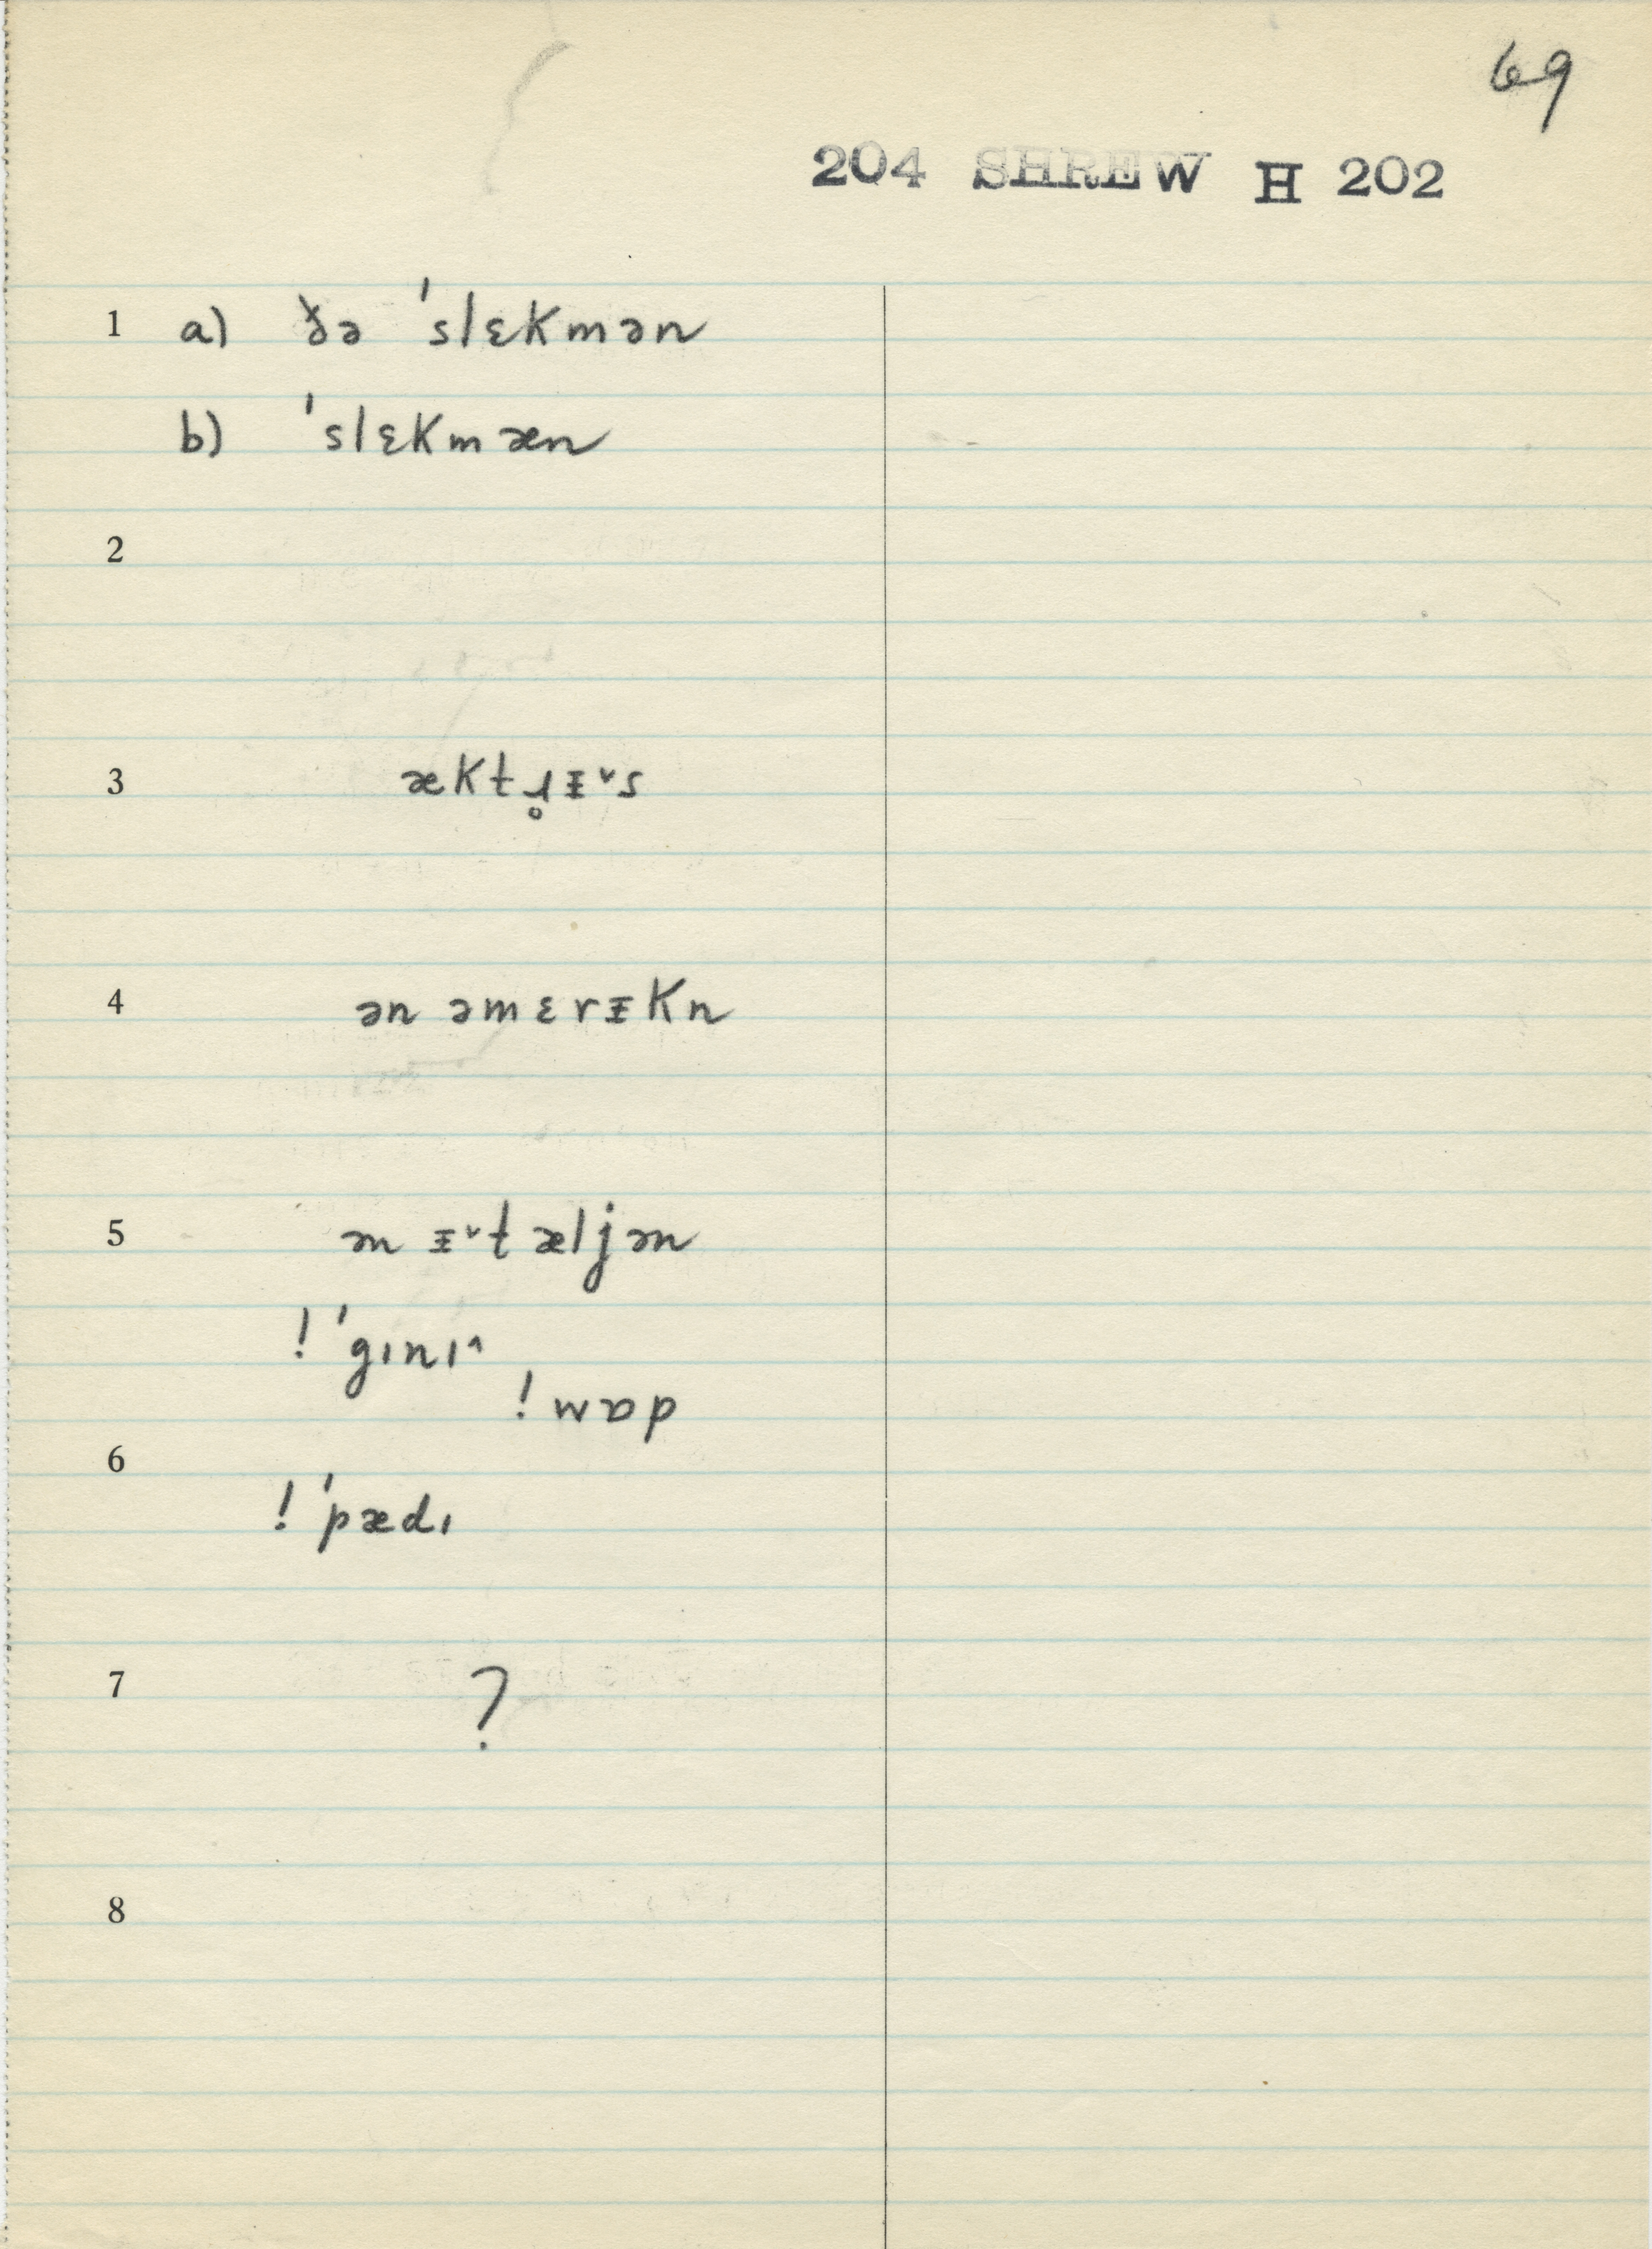 69
204 SHREW H 202
1 a) ðə ˈslɛkmən
b) ˈslɛkmæn
2
3 æktɹ̥ᵻ˅s
4 ən əmɛrᵻkn
5 ən ᵻ˅tæljən
! ˈgɪnɪ^
! wɒp
6
! ˈpædɪ
7 ?
8